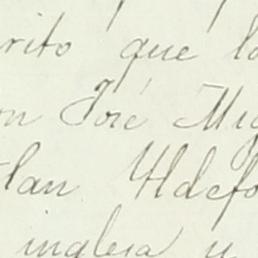 rito que l
n José Mig
lan Yldefo
inglesa y